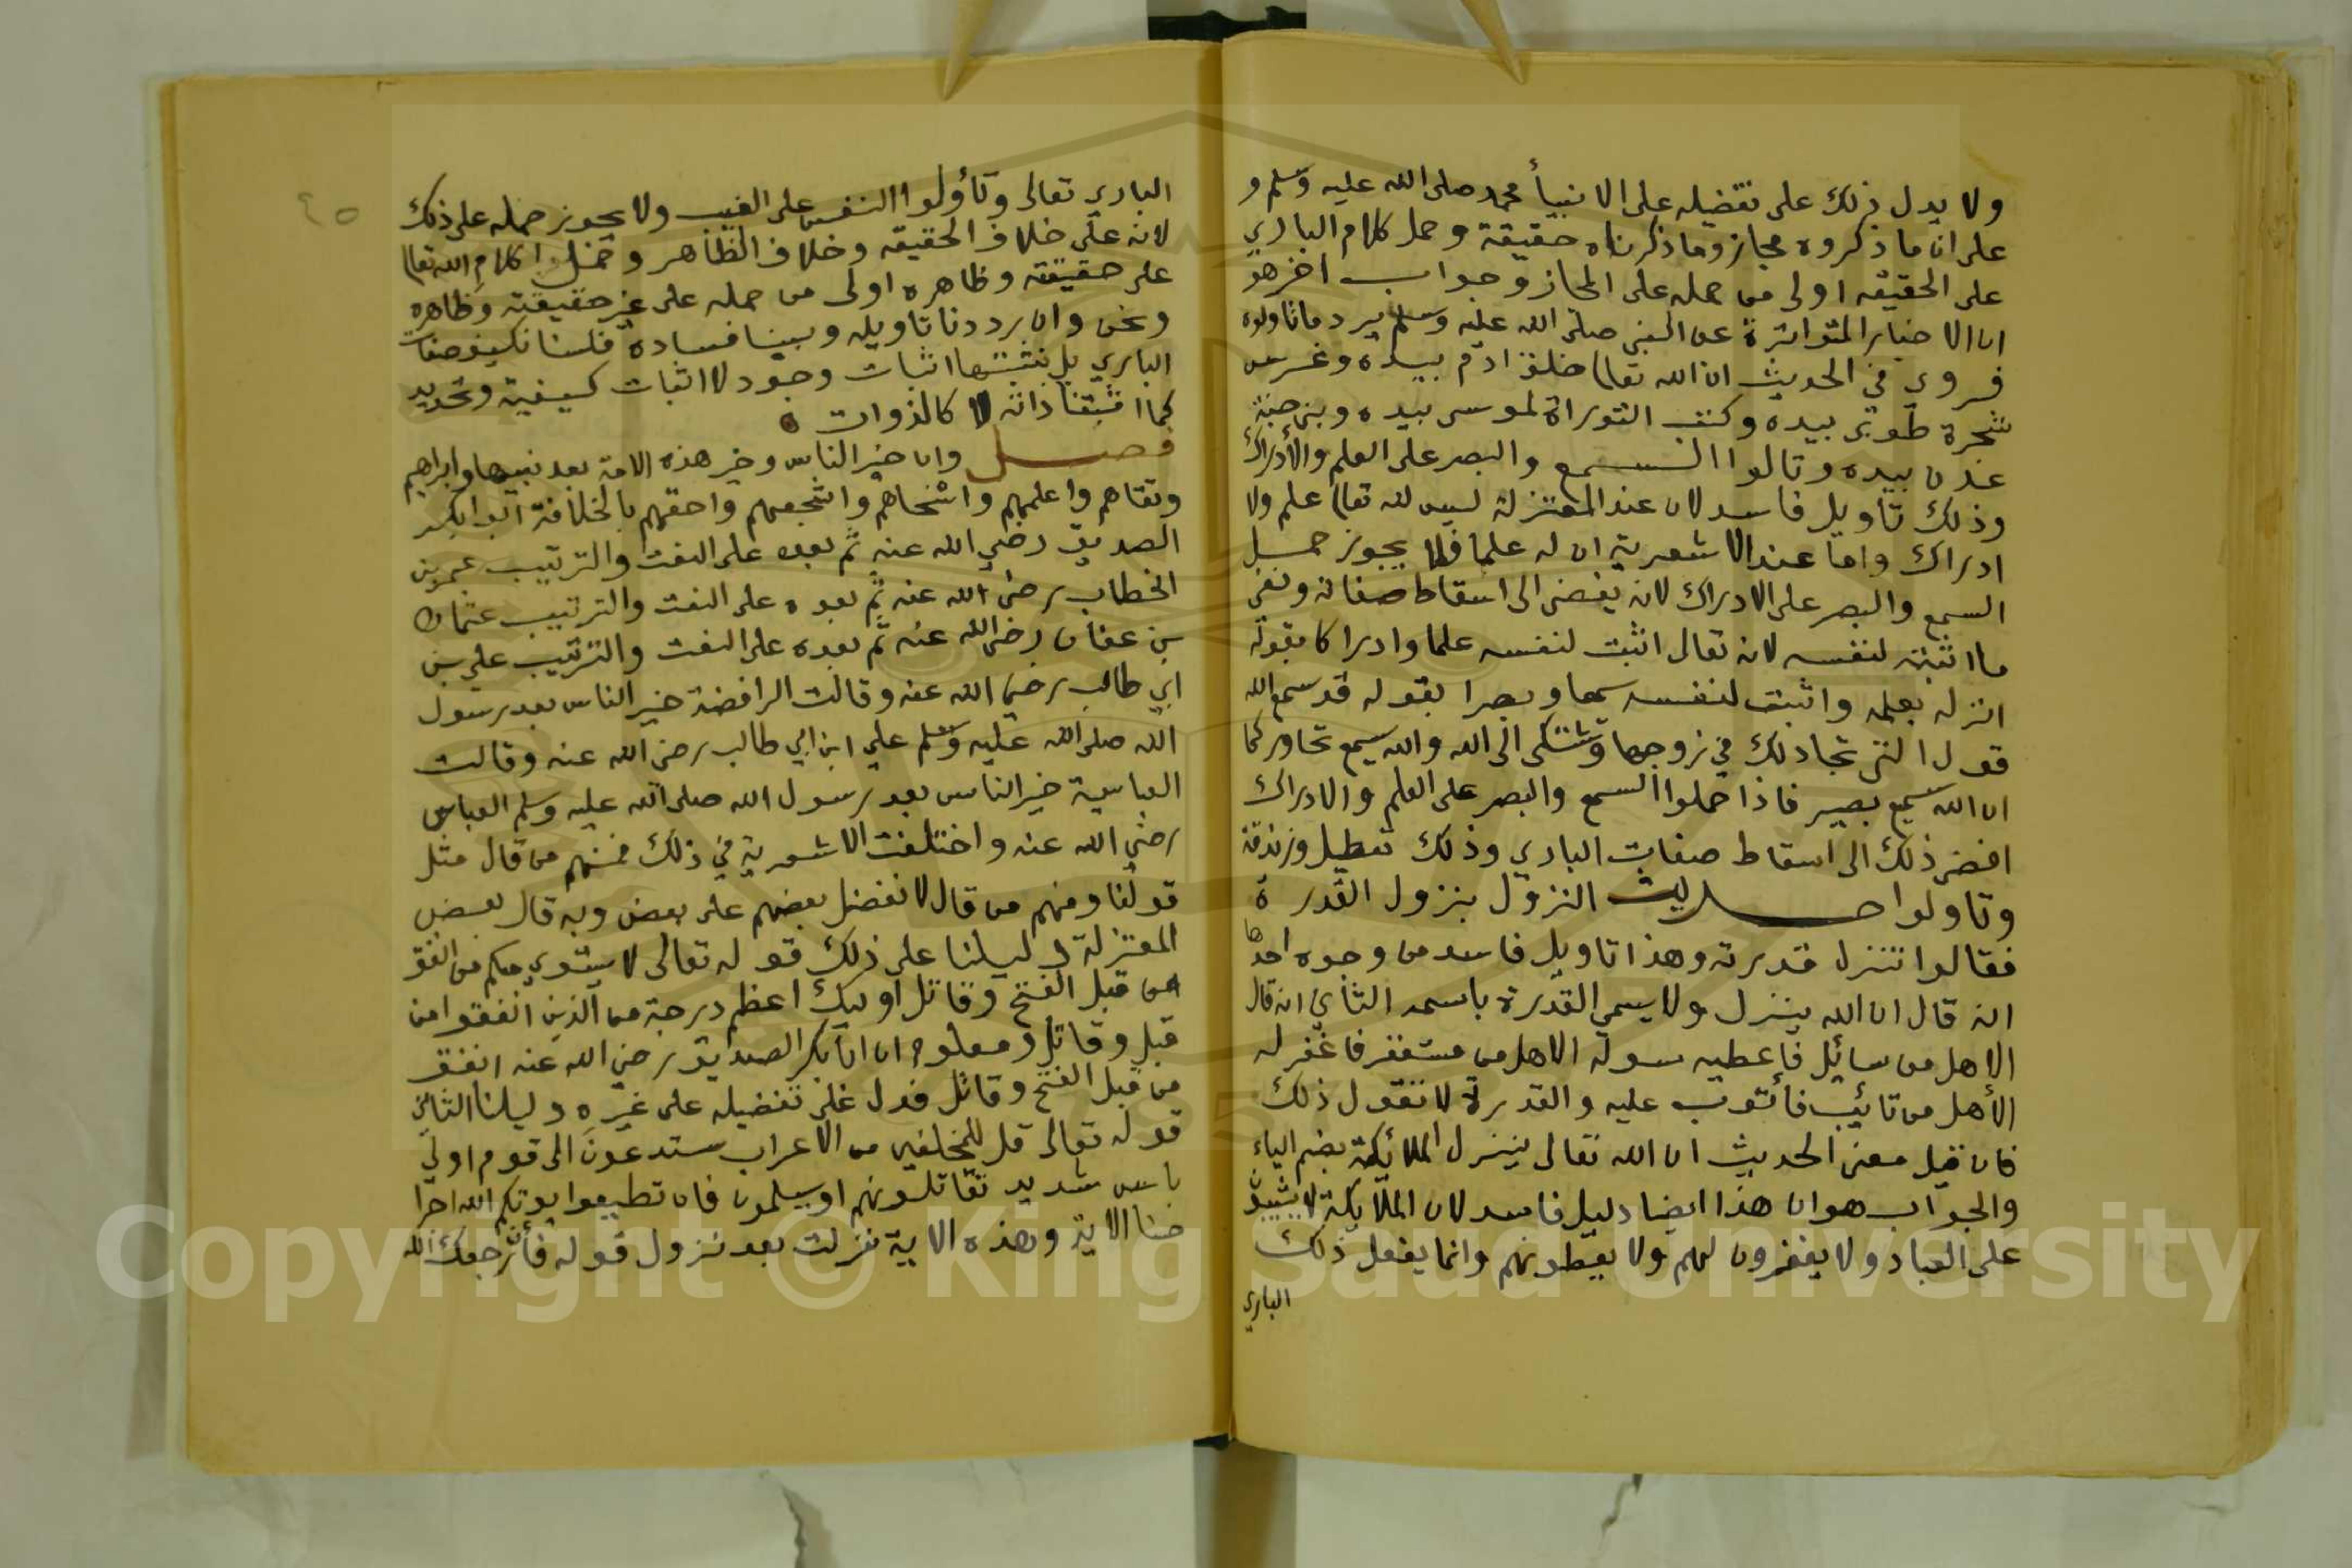 ولا يدل ذلك على تفضيله على الانبيأ محمد صلى الله عليه وسلم و
على ان ما ذكروه مجاز وما ذكرناه حقيقة وحمل كلام الباري
على الحقيقه اولى من حمله على المجاز وجواب اخر هو
ان الاخبار المتواترة عن النبي صلى الله عليه وسلم يرد ما تاولوه
فروي في الحديث ان الله تعالى خلق ادم بيده وغرس
شجرة طوبى بيده وكتب التوراة لموسى بيده وبنى جنة
عدن بيده وتالوا السمع والبصر على العلم والأدراك
وذلك تأويل فاسد لان عند المعتزلة ليس لله تعالى علم ولا
ادراك واما عند الاشعرية ان له علما فلا يجوز حمل
السمع والبصر على الادراك لانه يفضى الى اسقاط صفاته ونفي
ما اثبته لنفسه لانه تعالى اثبت لنفسه علما وادراكا بقوله
انزله بعلمه واثبت لنفسه سمعا وبصرا بقوله قد سمع الله
قول التي تجادلك في زوجها وتشتكى الى الله والله يسمع تحاوركما
ان الله سميع بصير فاذا حملوا السمع والبصر على العلم والادراك
افضى ذلك الى اسقاط صفات الباري وذلك تعطيل وزندقة
وتاولوا حديث النزول بنزول القدرة
فقالوا تنزل قدرته وهذا تاويل فاسد من وجوه احدها
انه قال ان الله ينزل ولا يسمى القدرة باسمه الثاني انه قال
الا هل من سائل فأعطيه سوله الا هل من مستغفر فاغفر له
الأهل من تائب فأتوب عليه والقدرة لا تقول ذلك
فان قيل معنى الحديث ان الله تعالى ينزل الملائكة بضم الياء
والجواب هو ان هذا ايضا دليل فاسد لان الملايكة لا
على العباد ولا يغفرون لهم ولا يعطونهم وانما يفعل ذلك
الباري
٤٥
الباري تعالى وتأولوا النفس على الغيب ولا يجوز حمله على ذلك
لانه على خلاف الحقيقه وخلاف الظاهر وحمل كلام الله تعالى
على حقيقته وظاهره اولى من حمله على غير حقيقته وظاهره
ونحن وان رددنا تاويله وبينا فساده فلسنا نكيف صفات
الباري بل نثبتها اثبات وجود لا اثبات كيفية وتحديد
كما اثبتنا ذاته لا كالذوات
فصل وان خير الناس وخير هذه الامة بعد نبيها وابراهيم
وتقاهم واعلمهم واسخاهم واشجعهم واحقهم بالخلافة ابو ابكر
الصديق رضي الله عنه ثم بعده على النعت والترتيب عمر بن
الخطاب رضى الله عنه ثم بعده على النعت والترتيب عثمان
بن عفان رضى الله عنه ثم بعده على النعت والترتيب علي بن
ابي طالب رضي الله عنه وقالت الرافضة خير الناس بعد رسول
الله صلى الله عليه وسلم علي ابن ابي طالب رضى الله عنه وقالت
العباسية خير الناس بعد رسول الله صلى الله عليه وسلم العباس
رضي الله عنه واختلفت الاشعرية في ذلك فمنهم من قال مثل
قولنا ومنهم من قال لا نفضل بعضهم على بعض وبه قال بعض
المعتزلة دليلنا على ذلك قوله تعالى لا يستوي منكم من انفق
من قبل الفتح وقاتل اوليك اعظم درجة من الذين انفقوا من
قبل وقاتل ومعلوم ان ابابكر الصديق رضي الله عنه انفق
من قبل الفتح وقاتل فدل على تفضيله على غيره دليلنا الثاني
قوله تعالى قل للمخلفين من الاعراب ستدعون الى قوم اولي
باس شديد تقاتلونهم او يسلمون فان تطيعوا يوتكم الله اجرا
حسنا الاية وهذه الاية نزلت بعد نزول قوله فأن رجعك الله
Copyright © King Saud University